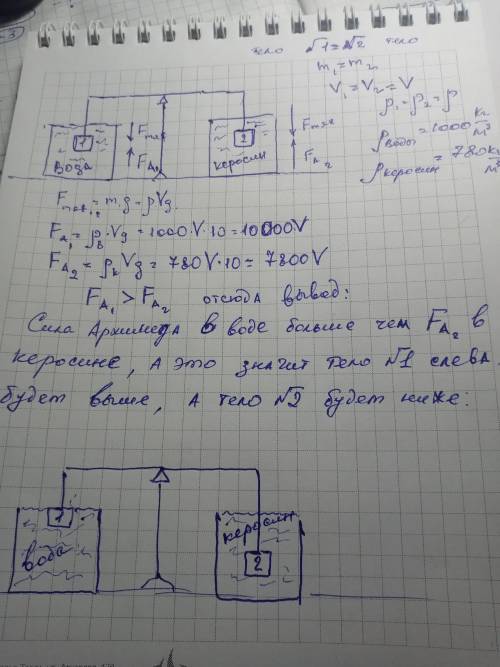 тело №1=№2 тело
m₁=m₂
V₁=V₂=V
ρ₁=ρ₂=ρ
ρводы=1000 кг/м³
ρкеросин=780 кг/м³
1
Вода
Fтяж
FA₁
2
керосин
Fтяж
FA₂
Fтяж₁,₂=m·g=ρVg
FA₁=ρв·Vg=1000·V·10=10000V
FA₂=ρкVg=780V·10=7800V
FA₁>FA₂ отсюда вывод:
Сила Архимеда в воде больше чем FA₂ в
керосине, а это значит тело №1 слева
будет выше, а тело №2 будет ниже:
1
вода
керосин
2